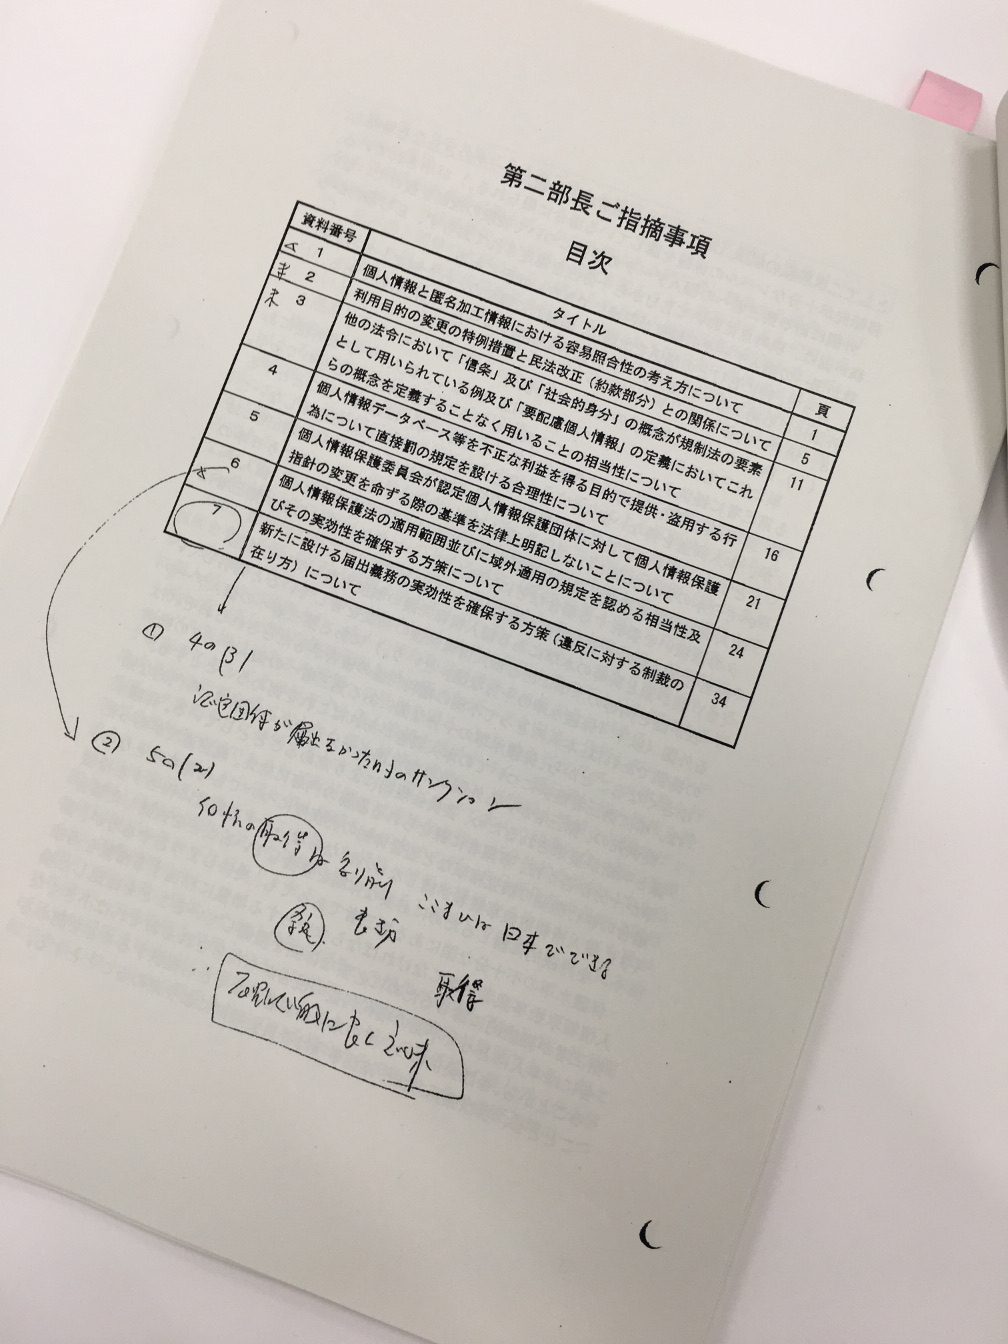 第二部長ご指摘事項
目次
資料番号 タイトル 頁
1 個人情報と匿名加工情報における容易照合性の考え方について 1
2 利用目的の変更の特例措置と民法改正（約款部分）との関係について 5
3 他の法令において「信条」及び「社会的身分」の概念が規制法の要素 11
として用いられている例及び「要配慮個人情報」の定義においてこれ
らの概念を定義することなく用いることの相当性について
4 個人情報データベース等を不正な利益を得る目的で提供・盗用する行 16
為について直接罰の規定を設ける合理性について
5 個人情報保護委員会が認定個人情報保護団体に対して個人情報保護 21
指針の変更を命ずる際の基準を法律上明記しないことについて
6 個人情報保護法の適用範囲並びに域外適用の規定を認める相当性及 24
びその実効性を確保する方策について
7 新たに設ける届出義務の実効性を確保する方策（違反に対する制裁の 34
在り方）について
① 4の(3)
認定団体が届出なかった時のサンクション
② 5の(2)
取得は ここまでは 日本でできる
取得